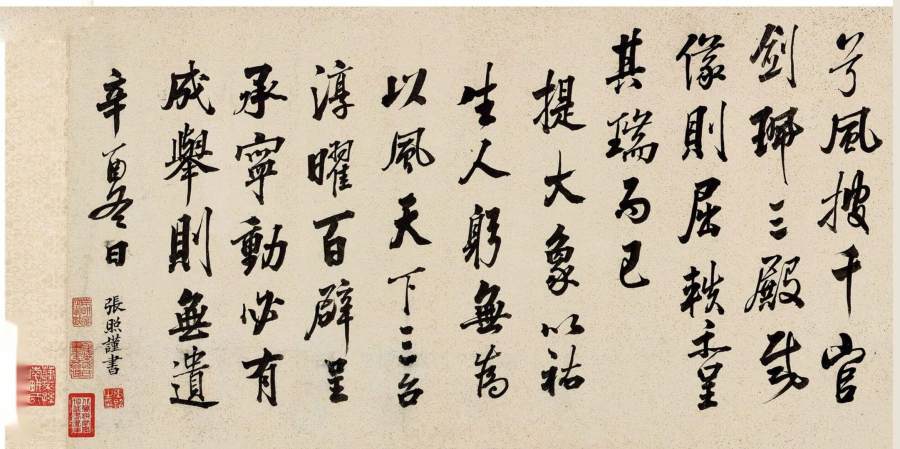 兮風披千官
劍珮三殿威
儀則屈軼不呈
其瑞而已
提大象以祐
生人躬無為
以風天下三台
淳曜百辟呈
承寧動必有
成舉則無遺
辛酉冬日
張照謹書